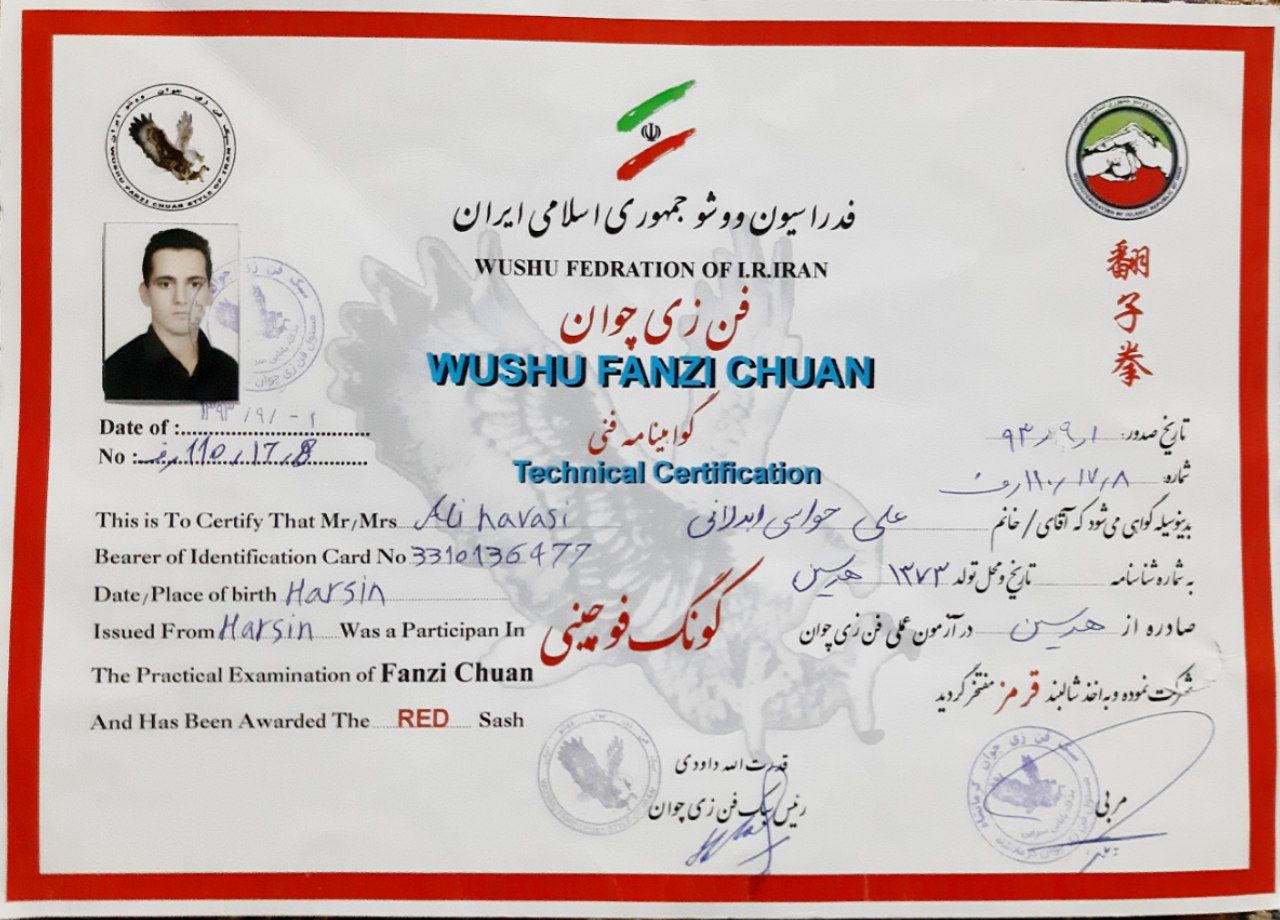 سبک فن زی چوان ووشو ایران
WUSHU FANZI CHUAN STYLE OF IRAN
فدراسیون ووشو جمهوری اسلامی ایران
WUSHU FEDRATION OF I.R.IRAN
翻子拳
فن زی چوان
WUSHU FANZI CHUAN
گواهینامه فنی
Technical Certification
۱۳۹۳/۹/۰۱
Date of :
No : 110/17/8
تاریخ صدور: ۹۳/۹/۱
شماره: ۱۱۰/۱۷/۸
This is To Certify That Mr/Mrs Ali havasi
بدینوسیله گواهی می‌شود که آقای / خانم علی حواسی ابدلانی
Bearer of Identification Card No 3310136477
به شماره شناسنامه تاریخ و محل تولد ۱۳۷۳ هرسین
Date/Place of birth Harsin
Issued From Harsin Was a Participan In
صادره از هرسین در آزمون عملی فن زی چوان
گونگ فو چینی
The Practical Examination of Fanzi Chuan
شرکت نموده و به اخذ شالبند قرمز مفتخر گردید
And Has Been Awarded The RED Sash
قدرت الله داودی
رئیس سبک فن زی چوان
مربی
سبک فن زی چوان کرمانشاه